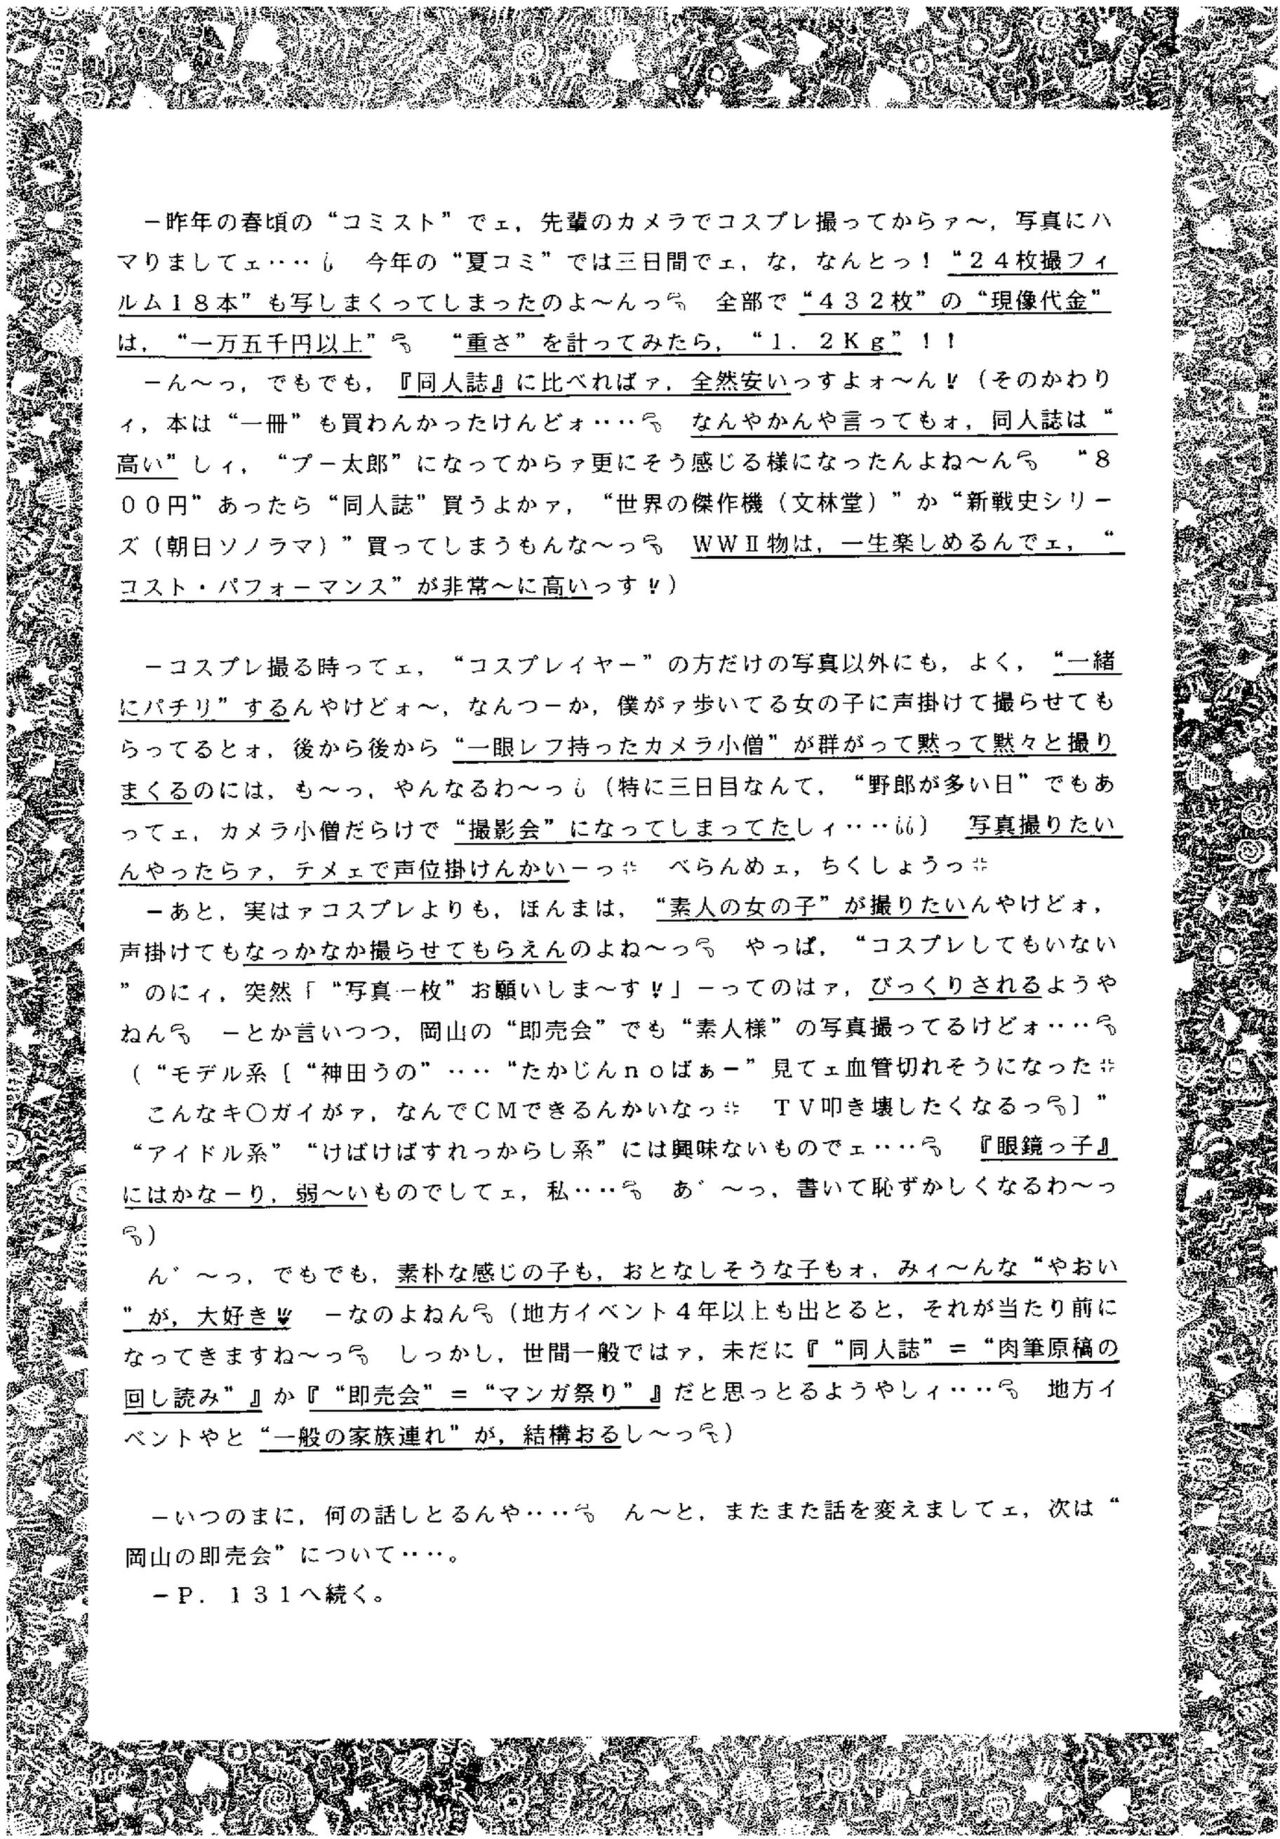 －昨年の春頃の“コミスト”でェ，先輩のカメラでコスプレ撮ってからァ～，写真にハ
マりましてェ‥‥💧　今年の“夏コミ”では三日間でェ，な，なんとっ！“２４枚撮フィ
ルム１８本”も写しまくってしまったのよ～んっ💦　全部で“４３２枚”の“現像代金”
は，“一万五千円以上”💦　“重さ”を計ってみたら，“１．２Ｋｇ”！！
－ん～っ，でもでも，『同人誌』に比べればァ，全然安いっすよォ～ん！（そのかわり
ィ，本は“一冊”も買わんかったけんどォ‥‥💦　なんやかんや言ってもォ，同人誌は“
高い”しィ，“プー太郎”になってからァ更にそう感じる様になったんよね～ん💦　“８
００円”あったら“同人誌”買うよかァ，“世界の傑作機（文林堂）”か“新戦史シリー
ズ（朝日ソノラマ）”買ってしまうもんな～っ💦　ＷＷⅡ物は，一生楽しめるんでェ，“
コスト・パフォーマンス”が非常～に高いっす！）
－コスプレ撮る時ってェ，“コスプレイヤー”の方だけの写真以外にも，よく，“一緒
にパチリ”するんやけどォ～，なんつーか，僕がァ歩いてる女の子に声掛けて撮らせても
らってるとォ，後から後から“一眼レフ持ったカメラ小僧”が群がって黙って黙々と撮り
まくるのには，も～っ，やんなるわ～っ💧（特に三日目なんて，“野郎が多い日”でもあ
ってェ，カメラ小僧だらけで“撮影会”になってしまってたしィ‥‥💧💧）　写真撮りたい
んやったらァ，テメェで声位掛けんかいーっ💢　べらんめェ，ちくしょうっ💢
－あと，実はァコスプレよりも，ほんまは，“素人の女の子”が撮りたいんやけどォ，
声掛けてもなっかなか撮らせてもらえんのよね～っ💦　やっぱ，“コスプレしてもいない
”のにィ，突然「“写真一枚”お願いしま～す！」－ってのはァ，びっくりされるようや
ねん💦　－とか言いつつ，岡山の“即売会”でも“素人様”の写真撮ってるけどォ‥‥💦
（“モデル系［“神田うの”‥‥“たかじんｎｏばぁー”見てェ血管切れそうになった💢
こんなキ○ガイがァ，なんでＣＭできるんかいなっ💢　ＴＶ叩き壊したくなるっ💦］”
“アイドル系”“けばけばすれっからし系”には興味ないものでェ‥‥💦　『眼鏡っ子』
にはかなーり，弱～いものでしてェ，私‥‥💦　あ゛～っ，書いて恥ずかしくなるわ～っ
💦）
ん゛～っ，でもでも，素朴な感じの子も，おとなしそうな子もォ，みィ～んな“やおい
”が，大好き！　－なのよねん💦（地方イベント４年以上も出とると，それが当たり前に
なってきますね～っ💦　しっかし，世間一般ではァ，未だに『“同人誌”＝“肉筆原稿の
回し読み”』か『“即売会”＝“マンガ祭り”』だと思っとるようやしィ‥‥💦　地方イ
ベントやと“一般の家族連れ”が，結構おるし～っ💦）
－いつのまに，何の話しとるんや‥‥💦　ん～と，またまた話を変えましてェ，次は“
岡山の即売会”について‥‥。
－Ｐ．１３１へ続く。